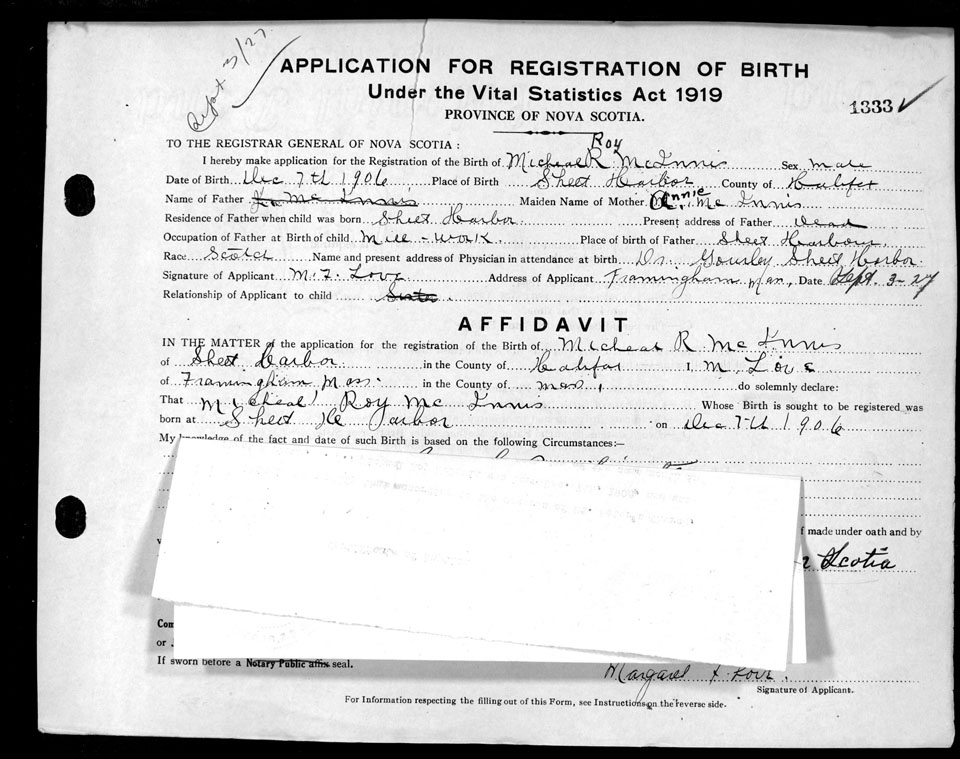 Sept 3/27
APPLICATION FOR REGISTRATION OF BIRTH
Under the Vital Statistics Act 1919
PROVINCE OF NOVA SCOTIA.
1333
TO THE REGISTRAR GENERAL OF NOVA SCOTIA :
Roy
I hereby make application for the Registration of the Birth of Micheal R McInnis Sex male
Date of Birth Dec 7th 1906 Place of Birth Sheet Harbor County of Halifax
Name of Father Mc Innis Maiden Name of Mother Annie Mc Innis
Residence of Father when child was born Sheet Harbor Present address of Father Dead
Occupation of Father at Birth of child Mill-work Place of birth of Father Sheet Harbour
Race Scotch Name and present address of Physician in attendance at birth Dr. Gourley Sheet Harbor
Signature of Applicant M. F. Love Address of Applicant Framingham Date Sept. 3-27
Relationship of Applicant to child Sister
AFFIDAVIT
IN THE MATTER of the application for the registration of the Birth of Micheal R McInnis
of Sheet Harbor in the County of Halifax I, M. Love
of Framingham Mass. in the County of Mass. do solemnly declare:
That Micheal Roy Mc Innis Whose Birth is sought to be registered was
born at Sheet Harbor on Dec 7th 1906
My knowledge of the fact and date of such Birth is based on the following Circumstances:—
f made under oath and by
Scotia
Com
or
If sworn before a Notary Public affix seal.
Margaret
Signature of Applicant.
For Information respecting the filling out of this Form, see Instructions on the reverse side.